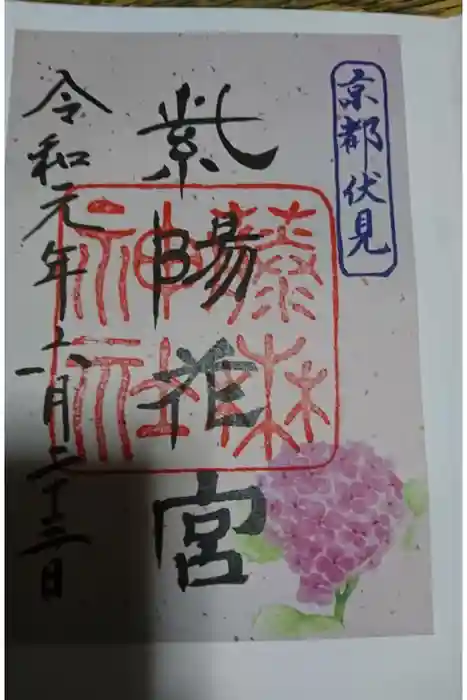 京都伏見
紫陽花宮
藤森
神社
令和元年六月二十三日